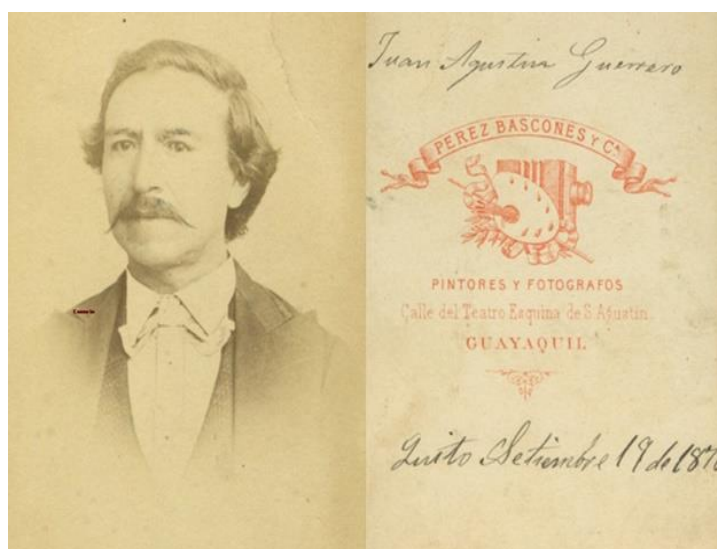 Juan Agustin Guerrero
PEREZ BASCONES Y Cᴬ
PINTORES Y FOTOGRAFOS
Calle del Teatro Esquina de S. Agustin
GUAYAQUIL
Quito Setiembre 19 de